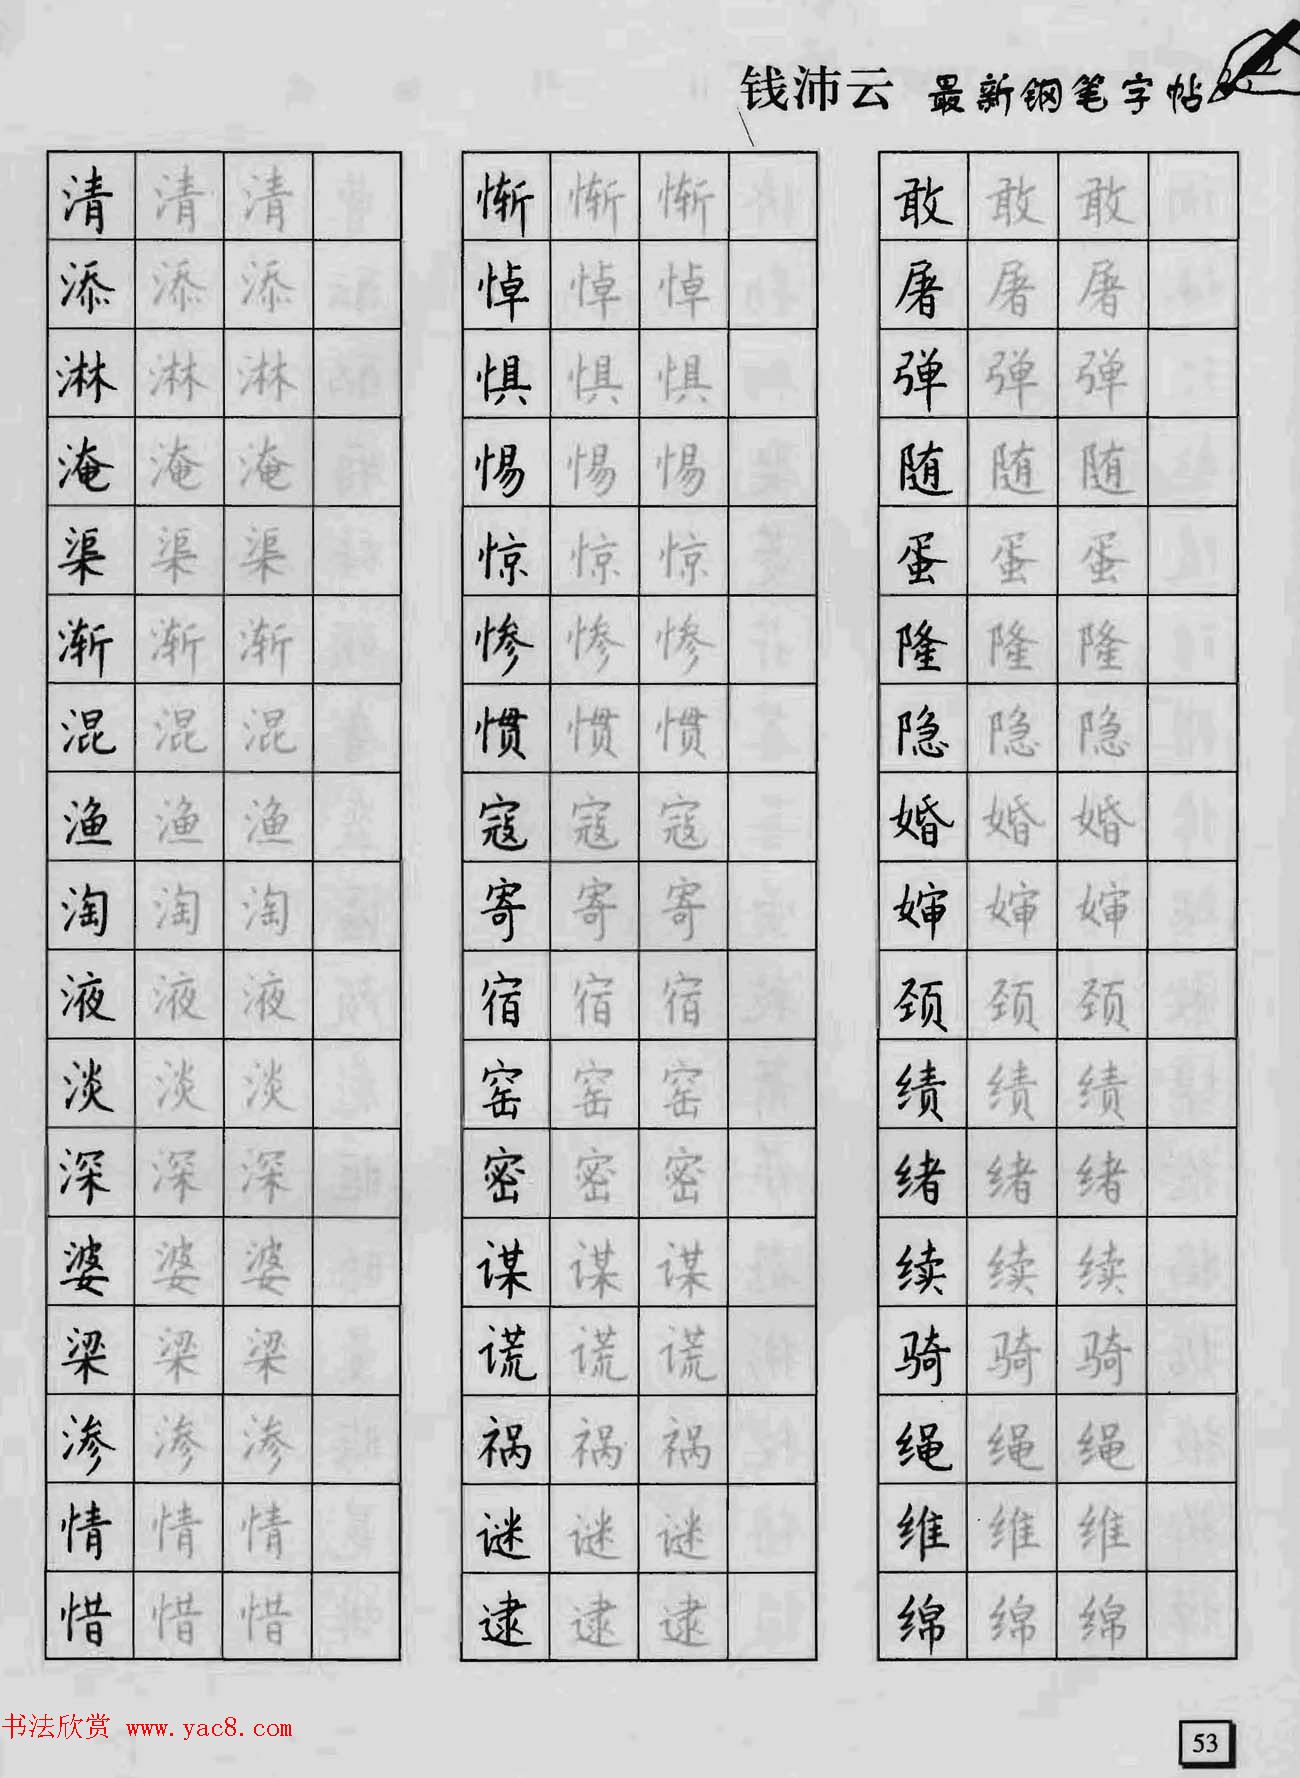 钱沛云 最新钢笔字帖
清 清 清 惭 惭 惭 敢 敢 敢
添 添 添 悼 悼 悼 屠 屠 屠
淋 淋 淋 惧 惧 惧 弹 弹 弹
淹 淹 淹 惕 惕 惕 随 随 随
渠 渠 渠 惊 惊 惊 蛋 蛋 蛋
渐 渐 渐 惨 惨 惨 隆 隆 隆
混 混 混 惯 惯 惯 隐 隐 隐
渔 渔 渔 寇 寇 寇 婚 婚 婚
淘 淘 淘 寄 寄 寄 婶 婶 婶
液 液 液 宿 宿 宿 颈 颈 颈
淡 淡 淡 窑 窑 窑 绩 绩 绩
深 深 深 密 密 密 绪 绪 绪
婆 婆 婆 谋 谋 谋 续 续 续
梁 梁 梁 谎 谎 谎 骑 骑 骑
渗 渗 渗 祸 祸 祸 绳 绳 绳
情 情 情 谜 谜 谜 维 维 维
惜 惜 惜 逮 逮 逮 绵 绵 绵
书法欣赏 www.yac8.com
53